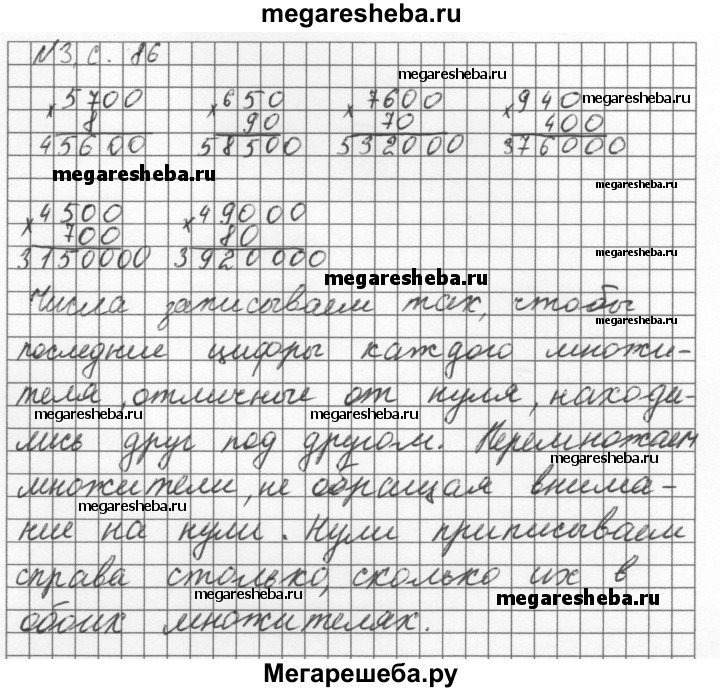 megaresheba.ru
№3, с. 86
megaresheba.ru
× 5700 × 650 × 7600 × 940 megaresheba.ru
8 90 70 400
45600 58500 532000 376000
megaresheba.ru
megaresheba.ru
× 4500 × 49000
700 80
3150000 3920000
megaresheba.ru
megaresheba.ru
Числа записываем так, чтобы
megaresheba.ru
последние цифры каждого множи-
теля, отличные от нуля, находи-
megaresheba.ru megaresheba.ru
лись друг под другом. Перемножаем
megaresheba.ru
множители, не обращая внима-
megaresheba.ru
ние на нули. Нули приписываем
справа столько, сколько их в
megaresheba.ru megaresheba.ru
обоих множителях.
Мегарешеба.ру